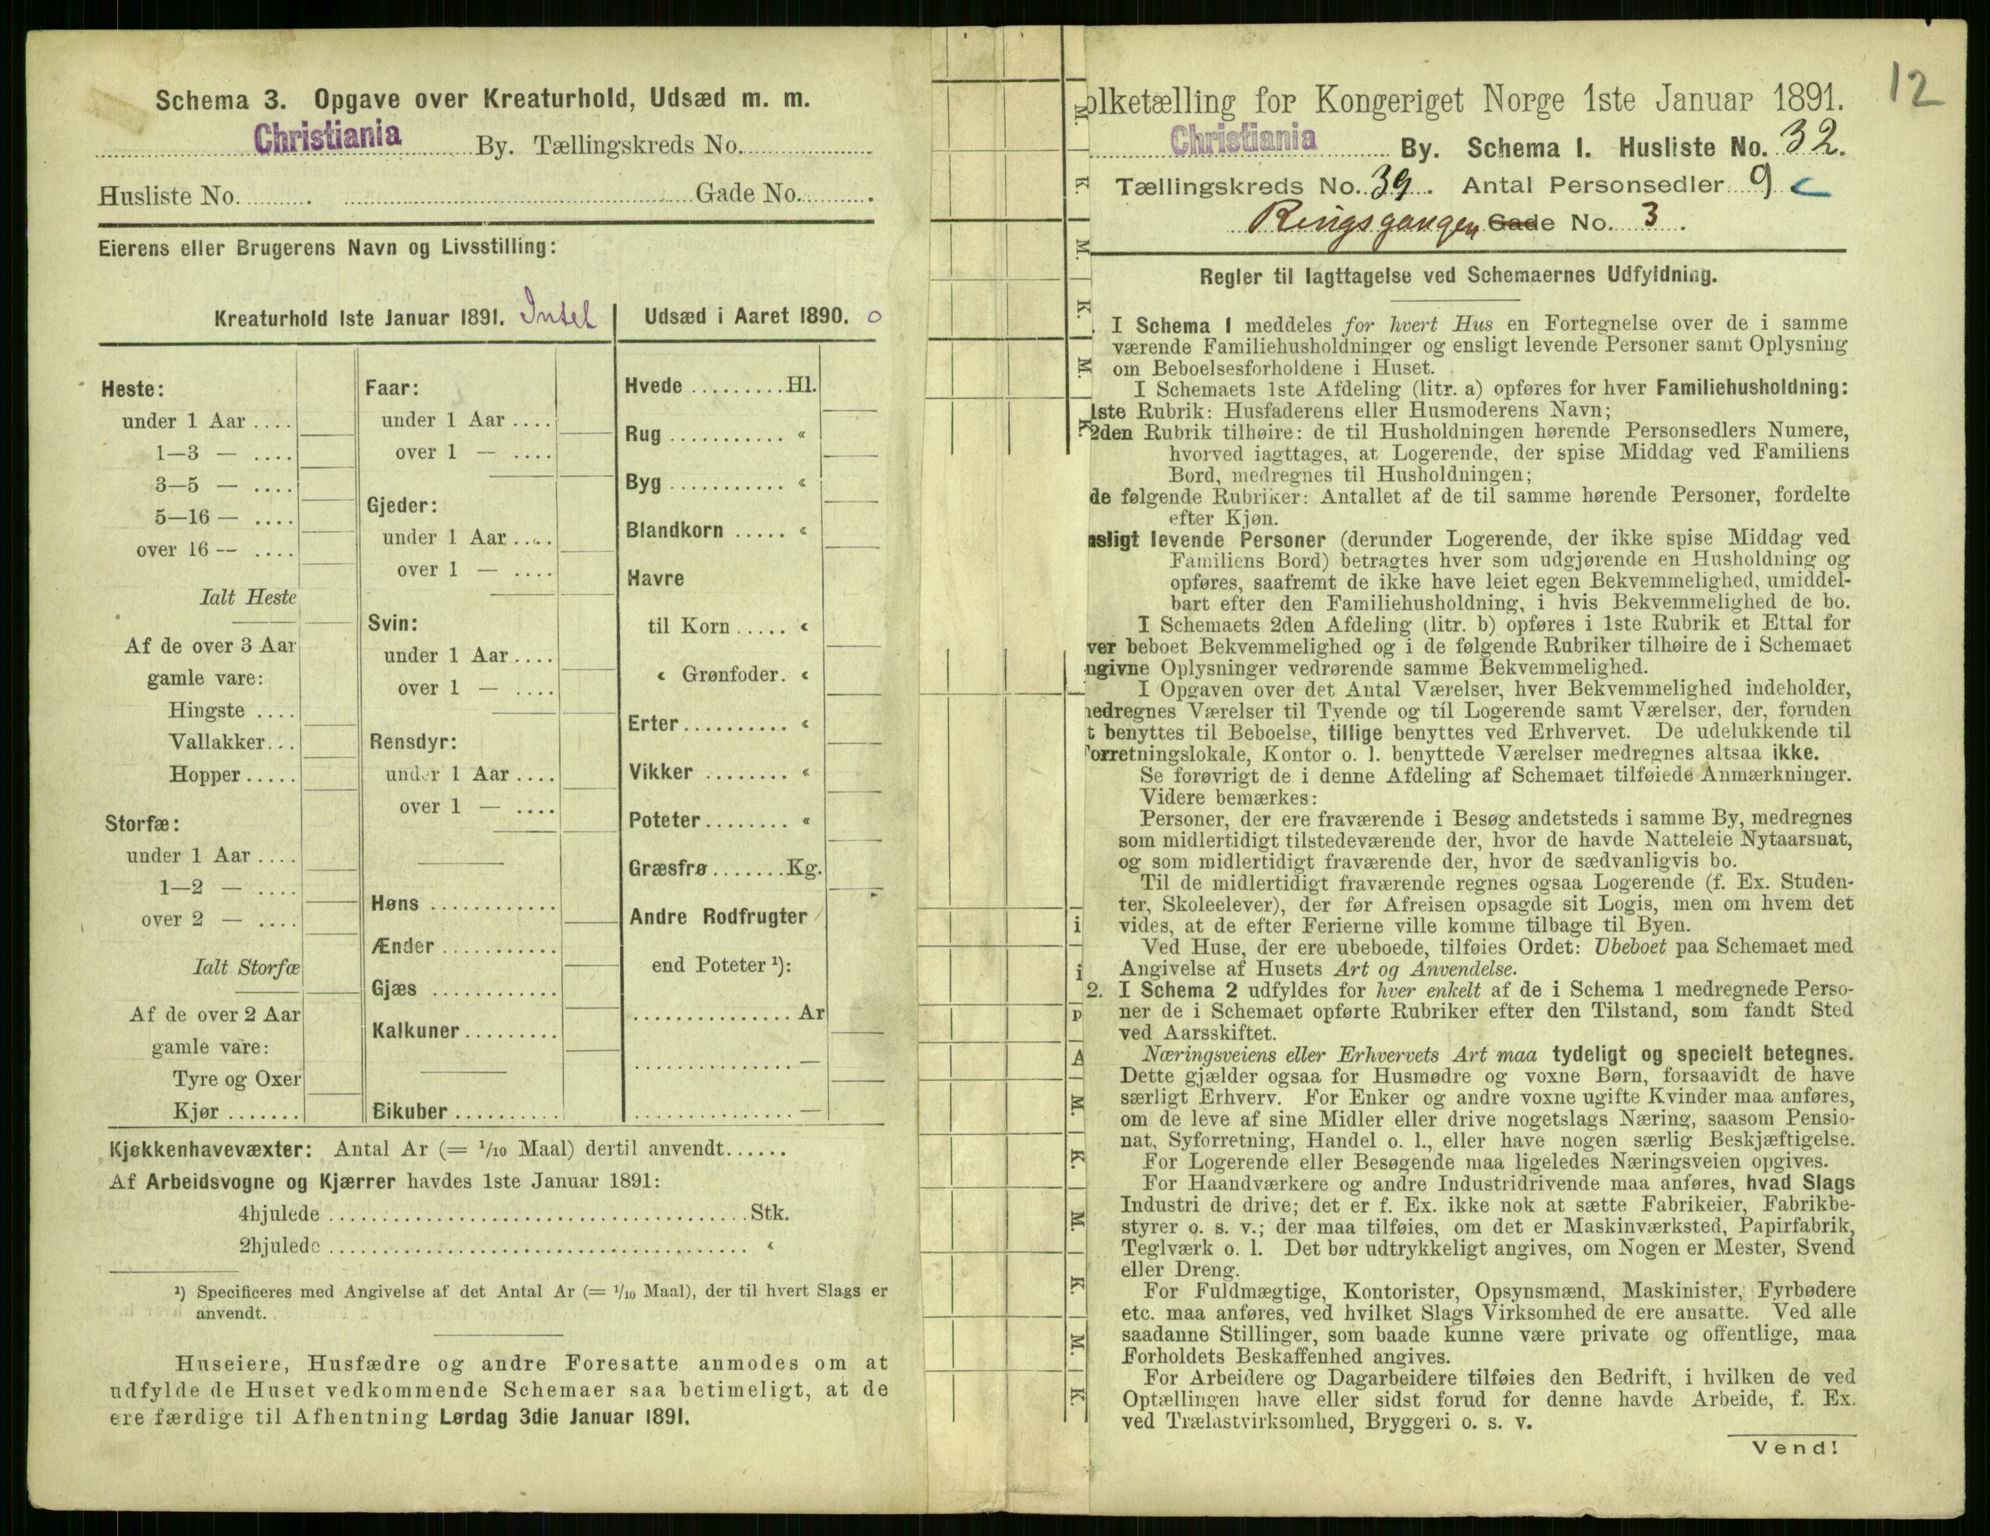 Schema 3. Opgave over Kreaturhold, Udsæd m. m.
Christiania By. Tællingskreds No.
Husliste No. . Gade No. .
Eierens eller Brugerens Navn og Livsstilling:
Kreaturhold 1ste Januar 1891. Intet
Heste:
under 1 Aar ....
1—3 — ....
3—5 — ....
5—16 — ....
over 16 -- ....
Ialt Heste
Af de over 3 Aar
gamle vare:
Hingste ....
Vallakker...
Hopper.....
Storfæ:
under 1 Aar ....
1—2 — ....
over 2 — ....
Ialt Storfæ
Af de over 2 Aar
gamle vare:
Tyre og Oxer
Kjør .......
Faar:
under 1 Aar ....
over 1 — ....
Gjeder:
under 1 Aar ....
over 1 — ....
Svin:
under 1 Aar ....
over 1 — ....
Rensdyr:
under 1 Aar ....
over 1 — ....
Høns ............
Ænder ...........
Gjæs ............
Kalkuner.........
Bikuber ..........
Udsæd i Aaret 1890. 0
Hvede .........Hl.
Rug ........... «
Byg ........... «
Blandkorn ..... «
Havre
til Korn ..... «
« Grønfoder. «
Erter.......... «
Vikker ........ «
Poteter........ «
Græsfrø .......Kg.
Andre Rodfrugter
end Poteter ¹):
............... Ar
............... —
............... —
Kjøkkenhavevæxter: Antal Ar (= 1/10 Maal) dertil anvendt......
Af Arbeidsvogne og Kjærrer havdes 1ste Januar 1891:
4hjulede ........................................Stk.
2hjulede ........................................ «
¹) Specificeres med Angivelse af det Antal Ar (= 1/10 Maal), der til hvert Slags er
anvendt.
Huseiere, Husfædre og andre Foresatte anmodes om at
udfylde de Huset vedkommende Schemaer saa betimeligt, at de
ere færdige til Afhentning Lørdag 3die Januar 1891.
M.
K.
M.
K.
M.
K.
i
i
p
A
M.
K.
M.
K.
M.
K.
12
olketælling for Kongeriget Norge 1ste Januar 1891.
Christiania By. Schema I. Husliste No. 32.
Tællingskreds No. 39. Antal Personsedler 9
Ringsgangen Gade No. 3.
Regler til Iagttagelse ved Schemaernes Udfyldning.
. I Schema 1 meddeles for hvert Hus en Fortegnelse over de i samme
værende Familiehusholdninger og ensligt levende Personer samt Oplysning
om Beboelsesforholdene i Huset.
I Schemaets 1ste Afdeling (litr. a) opføres for hver Familiehusholdning:
1ste Rubrik: Husfaderens eller Husmoderens Navn;
2den Rubrik tilhøire: de til Husholdningen hørende Personsedlers Numere,
hvorved iagttages, at Logerende, der spise Middag ved Familiens
Bord, medregnes til Husholdningen;
de følgende Rubriker: Antallet af de til samme hørende Personer, fordelte
efter Kjøn.
nsligt levende Personer (derunder Logerende, der ikke spise Middag ved
Familiens Bord) betragtes hver som udgjørende en Husholdning og
opføres, saafremt de ikke have leiet egen Bekvemmelighed, umiddel-
bart efter den Familiehusholdning, i hvis Bekvemmelighed de bo.
I Schemaets 2den Afdeling (litr. b) opføres i 1ste Rubrik et Ettal for
ver beboet Bekvemmelighed og i de følgende Rubriker tilhøire de i Schemaet
ngivne Oplysninger vedrørende samme Bekvemmelighed.
I Opgaven over det Antal Værelser, hver Bekvemmelighed indeholder,
nedregnes Værelser til Tyende og til Logerende samt Værelser, der, foruden
t benyttes til Beboelse, tillige benyttes ved Erhvervet. De udelukkende til
Forretningslokale, Kontor o. l. benyttede Værelser medregnes altsaa ikke.
Se forøvrigt de i denne Afdeling af Schemaet tilføiede Anmærkninger.
Videre bemærkes:
Personer, der ere fraværende i Besøg andetsteds i samme By, medregnes
som midlertidigt tilstedeværende der, hvor de havde Natteleie Nytaarsnat,
og som midlertidigt fraværende der, hvor de sædvanligvis bo.
Til de midlertidigt fraværende regnes ogsaa Logerende (f. Ex. Studen-
ter, Skoleelever), der før Afreisen opsagde sit Logis, men om hvem det
vides, at de efter Ferierne ville komme tilbage til Byen.
Ved Huse, der ere ubeboede, tilføies Ordet: Ubeboet paa Schemaet med
Angivelse af Husets Art og Anvendelse.
2. I Schema 2 udfyldes for hver enkelt af de i Schema 1 medregnede Perso-
ner de i Schemaet opførte Rubriker efter den Tilstand, som fandt Sted
ved Aarsskiftet.
Næringsveiens eller Erhvervets Art maa tydeligt og specielt betegnes.
Dette gjælder ogsaa for Husmødre og voxne Børn, forsaavidt de have
særligt Erhverv. For Enker og andre voxne ugifte Kvinder maa anføres,
om de leve af sine Midler eller drive nogetslags Næring, saasom Pensio-
nat, Syforretning, Handel o. l., eller have nogen særlig Beskjæftigelse.
For Logerende eller Besøgende maa ligeledes Næringsveien opgives.
For Haandværkere og andre Industridrivende maa anføres, hvad Slags
Industri de drive; det er f. Ex. ikke nok at sætte Fabrikeier, Fabrikbe-
styrer o. s. v.; der maa tilføies, om det er Maskinværksted, Papirfabrik,
Teglværk o. l. Det bør udtrykkeligt angives, om Nogen er Mester, Svend
eller Dreng.
For Fuldmægtige, Kontorister, Opsynsmænd, Maskinister, Fyrbødere
etc. maa anføres, ved hvilket Slags Virksomhed de ere ansatte. Ved alle
saadanne Stillinger, som baade kunne være private og offentlige, maa
Forholdets Beskaffenhed angives.
For Arbeidere og Dagarbeidere tilføies den Bedrift, i hvilken de ved
Optællingen have eller sidst forud for denne havde Arbeide, f. Ex.
ved Trælastvirksomhed, Bryggeri o. s. v.
Vend!